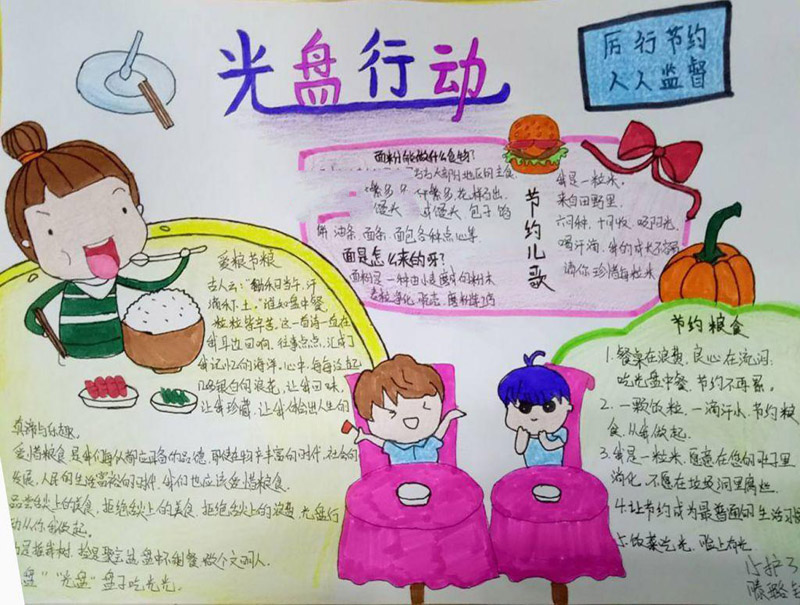 光盘行动
厉行节约
人人监督
面粉能做什么食物?
大部分地区的主食
花样百出
馒头 包子
油条、面条、面包各种点心等
面是怎么来的呀?
面粉是一种由小麦磨成的粉末
节约儿歌
我是一粒米,
来自田野里,
六月种,十月收,喝阳光,
喝汗滴,我的成长不容易
请你珍惜每粒米
爱粮节粮
古人云:"锄禾日当午,汗
滴禾下土,谁知盘中餐,
粒粒皆辛苦。这一首诗一直在
我耳边回响,往事点点,汇成了
我记忆的海洋,心中,每每泛起
几朵银白的浪花,让我回味,
让我珍藏,让我悟出人生的
真谛与乐趣。
爱惜粮食是我们每人都应具备的品德,即使在物辛丰富的时代,社会的
发展,人民的生活富裕的时代,我们也应该爱惜粮食。
品尝舌尖上的美食,拒绝舌尖上的浪费,光盘行
动从你我做起。
盘中不剩餐,做个文明人。
盘""光盘"盘子吃光光。
节约粮食
1.餐桌在浪费,良心在流泪;
吃光盘中餐,节约不再累。
2.一颗饭粒,一滴汗水,节约粮
食,从我做起。
3.我是一粒米,愿意在您的肚子里
消化,不愿在垃圾洞里腐烂
4.让节约成为最普通的生活习惯
5.饭菜吃光,脸上有光